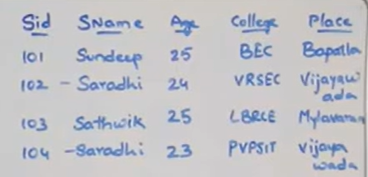 Sid SName Age College Place
101 Sundeep 25 BEC Bapatla
102 - Saradhi 24 VRSEC Vijayaw
ada
103 Sathwik 25 LBRCE Mylavaram
104 - Saradhi 23 PVPSIT Vijaya
wada